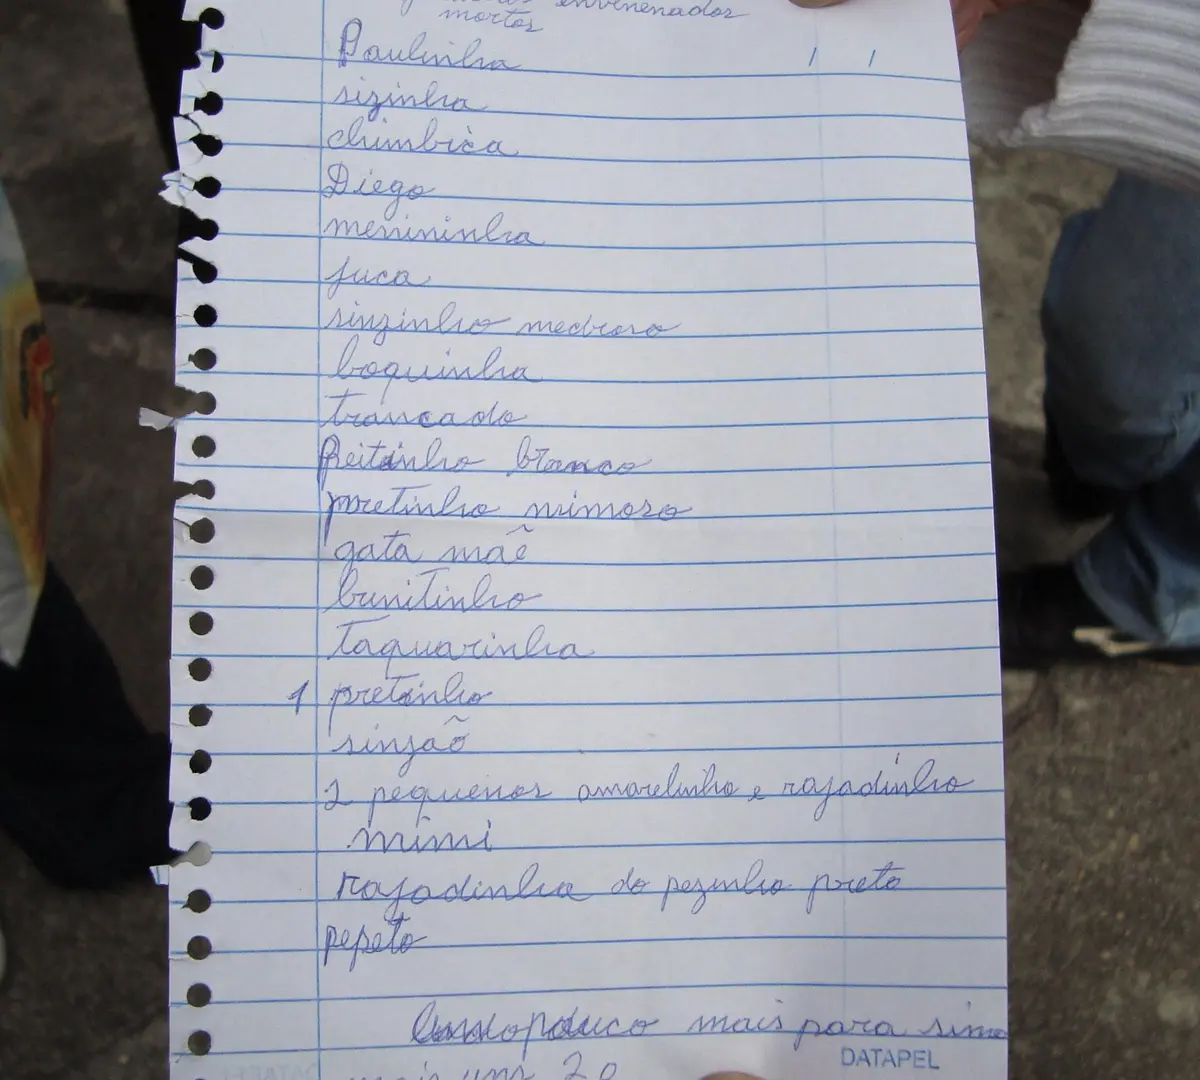 envenenados
mortos
Paulinha
sizinha
chimbica
Diego
menininha
juca
sinzinho medroso
boquinha
trancado
Peitinho branco
pretinho mimoso
gata mãe
bunitinho
Taquarinha
1 pretinho
sinzão
2 pequenos amarelinho e rajadinho
mimi
rajadinha do pezinho preto
pepeto
pouco mais para sima
DATAPEL
mais uns 20